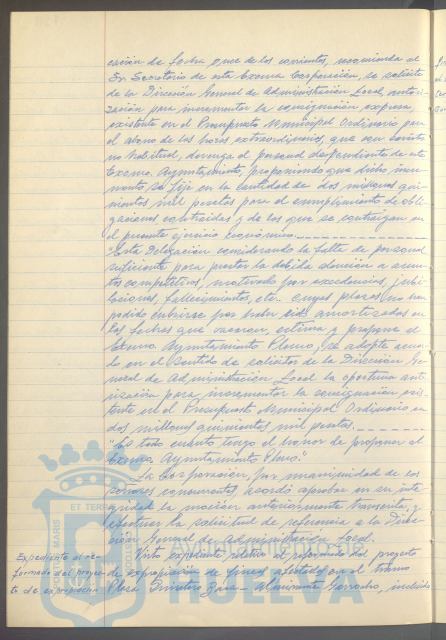 cación de fecha once de los corrientes, requiriendo al
Sr. Secretario de esta Excma Corporación, se solicite
de la Dirección General de Administración Local, autori-
zación para incrementar la consignación expresa
existente en el Presupuesto Municipal Ordinario para
el abono de las horas extraordinarias, que con carácter
no habitual, devenga el personal dependiente de este
Excmo. Ayuntamiento, proponiendo que dicho incre-
mento se fije en la cantidad de dos millones qui-
nientas mil pesetas para el cumplimiento de obli-
gaciones contraídas y de las que se contraigan en
el presente ejercicio Económico.
"Esta Delegación considerando la falta de personal
suficiente para prestar la debida atención a asun-
tos competitivos, motivado por excedencias, jubi-
laciones, fallecimientos, etc. cuyas plazas no han
podido cubrirse por haber sido amortizadas en
las fechas que vacaran, estima y propone al
Excmo Ayuntamiento Pleno, se adopte acuer-
do en el sentido de solicitar de la Dirección Ge-
neral de Administración Local la oportuna auto-
rización para incrementar la consignación exis-
tente en el Presupuesto Municipal Ordinario en
dos millones quinientas mil pesetas.
"Es todo cuanto tengo el honor de proponer al
Excmo. Ayuntamiento Pleno."
La Corporación, por unanimidad de los
señores concurrentes, acordó aprobar en su inte-
gridad la moción anteriormente transcrita, y
efectuar la solicitud de referencia a la Direc-
ción General de Administración Local.
Expediente al re-
formado del proyec-
to de expropiación
Visto expediente relativo a reformado del proyecto
de expropiación de fincas afectadas en el tramo
Plaza Primitivo Zara - Almirante Garrocho, incluido
PORTUS MARIS
ET TERRAE
HUELVA